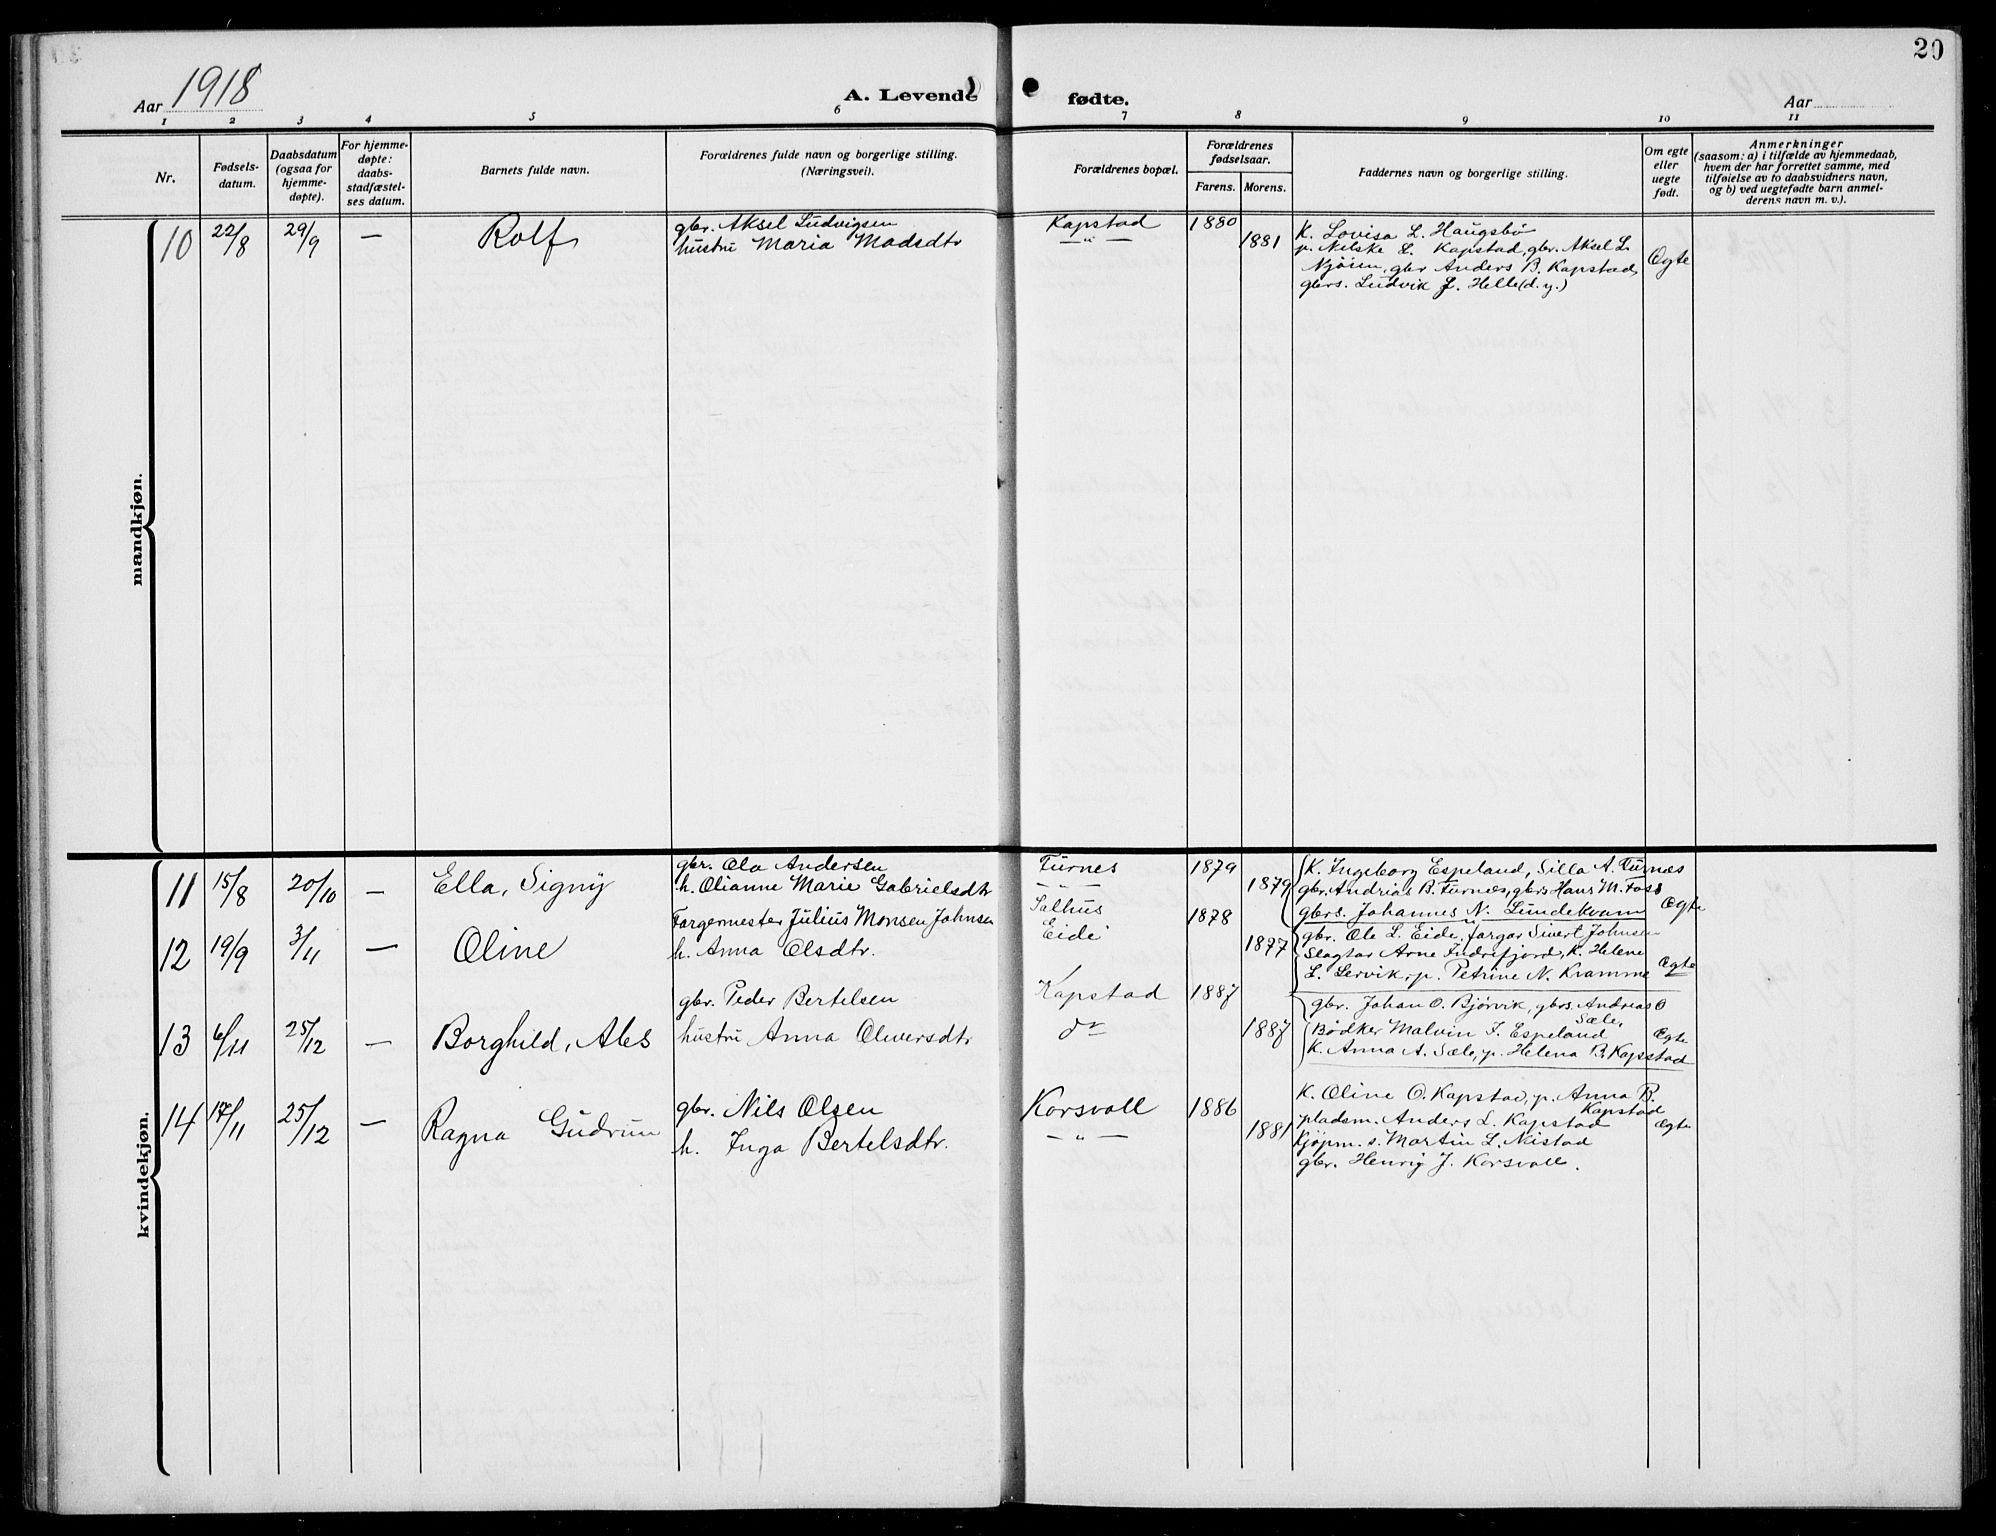 20
Aar 1918
A. Levende fødte.
Aar
1 2 3 4 5 6 7 8 9 10 11
Nr.
Fødsels-
datum.
Daabsdatum
(ogsaa for
hjemme-
døpte).
For hjemme-
døpte:
daabs-
stadfæstel-
ses datum.
Barnets fulde navn.
Forældrenes fulde navn og borgerlige stilling.
(Næringsvei).
Forældrenes bopæl.
Forældrenes
fødselsaar.
Farens. Morens.
Faddernes navn og borgerlige stilling.
Om egte
eller
uegte
født.
Anmerkninger
(saasom: a) i tilfælde av hjemmedaab,
hvem der har forrettet samme, med
tilføielse av to daabsvidners navn,
og b) ved uegtefødte barn anmel-
derens navn m. v.).
mandkjøn.
10 22/8 29/9 — Rolf
gbr. Aksel Ludvigsen
hustru Maria Madsdtr
Kapstad
— " —
1880
1881
K. Lovisa L. Haugsbø
p. Nelske L. Kapstad, gbr. Aksel L.
Njøien, gbr Anders B. Kapstad,
gbrs. Ludvik J. Helle (d. y.)
Egte
kvindekjøn.
11 15/8 20/10 — Ella, Signy
gbr. Ola Andersen
h. Olianne Marie Gabrielsdtr
Furnes
— " —
1879
1879
K. Ingeborg Espeland, Silla A. Furnes
gbr. Andrias B. Furnes, gbrs Hans M. Foss
gbrs. Johannes N. Lundekvam
Egte
12 19/9 3/11 — Oline
Fargermester Julius Monsen Johnsen
h. Anna Olsdtr.
Salhus
Eide
1878
1897
gbr. Ole L. Eide, farger Sivert Johnsen
Slagtar Arne Indrefjord, K. Helene
L. Lervik, p. Petrine N. Kramme
Egte
13 6/11 25/12 — Borghild, Ales
gbr. Peder Bertelsen
hustru Anna Oliversdtr
Kapstad
do
1887
1887
gbr. Johan O. Bjørvik, gbrs. Andreas O
Sæle,
Bødker Malvin J. Espeland
K. Anna A. Sæle, p. Helena B. Kapstad
Egte
14 17/11 25/12 — Ragna Gudrun
gbr. Nils Olsen
h. Inga Bertelsdtr.
Korsvoll
— " —
1886
1881
K. Oline O. Kapstad, p. Anna B.
Kapstad
pladsm. Anders L. Kapstad
Kjøpm. s. Martin L. Neistad
gbr. Henrig J. Korsvoll.
Egte